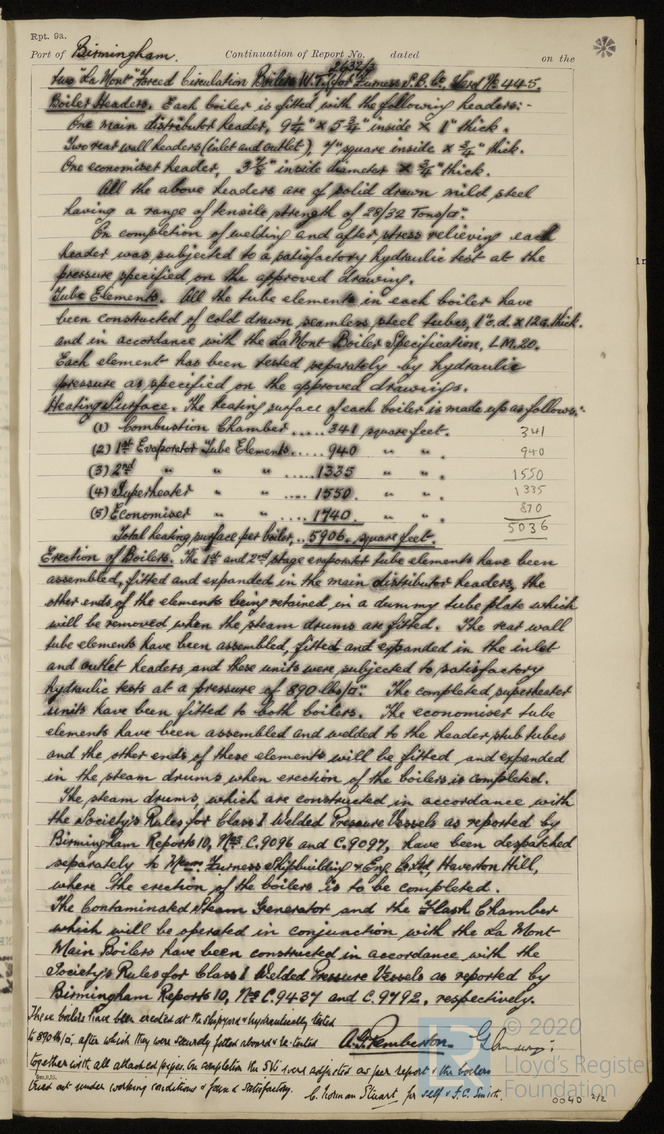 Rpt. 9a.
Port of Birmingham. Continuation of Report No. dated on the
two "La Mont" Forced Circulation Boilers W.T. for Furness S.B. Co. Yard No 445.
Boiler Headers. Each boiler is fitted with the following headers:-
One main distributor header, 9¼" x 5¾" inside x 1" thick.
Two rear wall headers (inlet and outlet), 4" square inside x ¾" thick.
One economiser header, 3⅞" inside diameter x ¾" thick.
All the above headers are of solid drawn mild steel
having a range of tensile strength of 28/32 Tons/□".
On completion of welding and after stress relieving each
header was subjected to a satisfactory hydraulic test at the
pressure specified on the approved drawing.
Tube Elements. All the tube elements in each boiler have
been constructed of cold drawn seamless steel tubes, 1" o.d. x 12g. thick.
and in accordance with the La Mont Boiler Specification, LM.20.
Each element has been tested separately by hydraulic
pressure as specified on the approved drawings.
Heating Surface. The heating surface of each boiler is made up as follows:-
(1) Combustion Chamber ..... 341 square feet. 341
(2) 1st Evaporator Tube Elements ..... 940 " " . 940
(3) 2nd " " " ..... 1335 " " . 1550
(4) Superheater " " ..... 1550. " " . 1335
(5) Economiser " " ..... 1740. " " . 870
Total heating surface per boiler, .. 5906. square feet. 5036
Erection of Boilers. The 1st and 2nd stage evaporator tube elements have been
assembled, fitted and expanded in the main distributor headers, the
other ends of the elements being retained in a dummy tube plate which
will be removed when the steam drums are fitted. The rear wall
tube elements have been assembled, fitted and expanded in the inlet
and outlet headers and these units were subjected to satisfactory
hydraulic tests at a pressure of 890 lbs/□". The completed superheater
units have been fitted to both boilers. The economiser tube
elements have been assembled and welded to the header stub tubes
and the other ends of these elements will be fitted and expanded
in the steam drums when erection of the boilers is completed.
The steam drums, which are constructed in accordance with
the Society's Rules for Class 1 Welded Pressure Vessels as reported by
Birmingham Reports 10, Nos C.9096 and C.9097, have been despatched
separately to Messrs Furness Shipbuilding & Eng. Co Ltd, Haverton Hill,
where the erection of the boilers is to be completed.
The Contaminated Steam Generator and the Flash Chamber
which will be operated in conjunction with the La Mont
Main Boilers have been constructed in accordance with the
Society's Rules for Class 1 Welded Pressure Vessels as reported by
Birmingham Reports 10, Nos C.9437 and C.9792, respectively.
These boilers have been erected at the shipyard & hydraulically tested
to 890 lb/□", after which they were securely fitted aboard & re-tested A.G. Pemberton.
together with all attached pipes. On completion the SVs were adjusted as per report & the boilers
tried out under working conditions & found satisfactory. C. Norman Stuart for self & J.C. Smith.
© 2020
Lloyd's Register
Foundation
0040 2/2